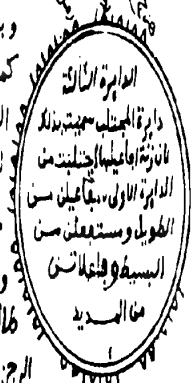 الدايرة الثالثة
دايرة المجتلب سميت بذلك
لان وزنة افاعيلها اجتلبت من
الدايرة الاولى، مفاعيلن من
الطويل ومستفعلن من
البسيط وفاعلاتن
من المديد
الرجز